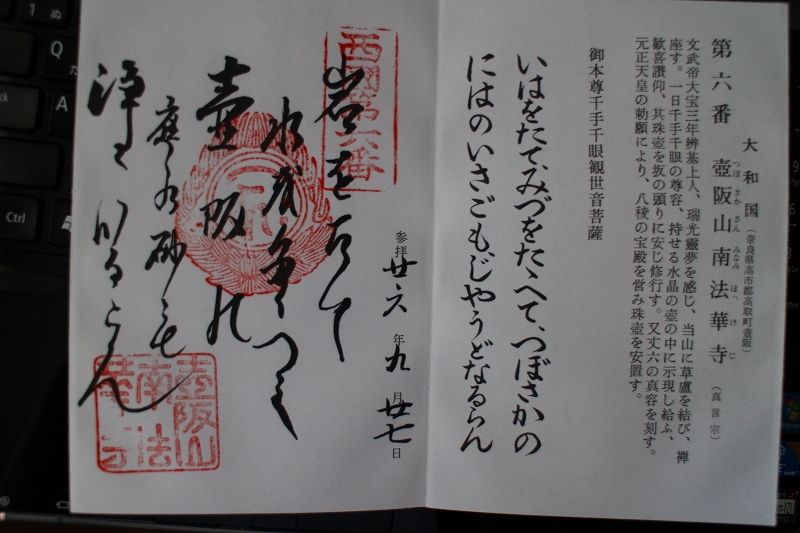 大和国（奈良県高市郡高取町壺阪）
第六番　壺阪山南法華寺（真言宗）
つぼさかさんみなみほっけじ
文武帝大宝三年辨基上人、瑞光靈夢を感じ、当山に草盧を結び、禅
座す。一日千手千眼の尊容、持せる水晶の壺の中に示現し給ふ、
歓喜讃仰、其珠壺を坂の頭りに安じ修行す。又丈六の真容を刻す。
元正天皇の勅願により、八稜の宝殿を営み珠壺を安置す。
御本尊千手千眼観世音菩薩
いはをたて、みづをたゝへて、つぼさかの
にはのいさごも、じやうどなるらん
参拝廿六年九月廿七日
西國第六番
岩をたて
水をたゝへて
壺阪の
庭の砂も
浄土なるらん
壺阪山
南法
華寺